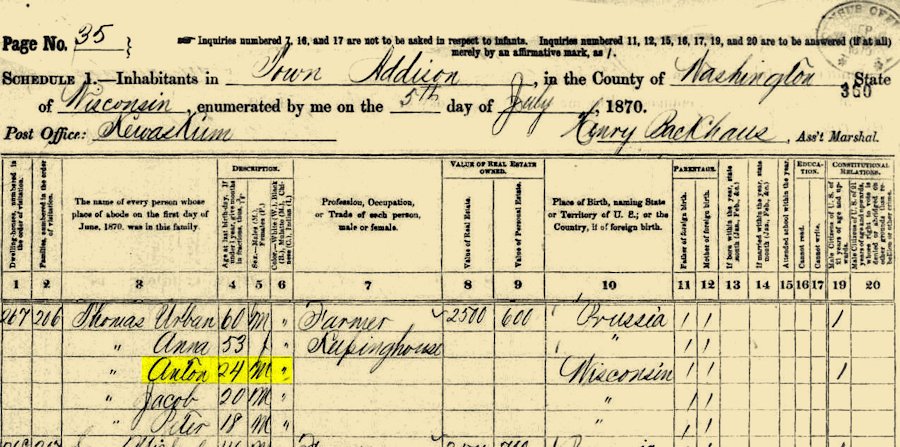 Page No. 35
☞ Inquiries numbered 7, 16, and 17 are not to be asked in respect to infants. Inquiries numbered 11, 12, 15, 16, 17, 19, and 20 are to be answered (if at all)
merely by an affirmative mark, as /.
SCHEDULE 1.—Inhabitants in Town Addison, in the County of Washington State
350
of Wisconsin, enumerated by me on the 5th day of July, 1870.
Post Office: Kewaskum Henry Backhaus, Ass't Marshal.
DESCRIPTION. VALUE OF REAL ESTATE OWNED. PARENTAGE. EDUCATION. CONSTITUTIONAL RELATIONS.
Dwelling-houses, numbered in the order of visitation.
Families, numbered in the order of visitation.
The name of every person whose place of abode on the first day of June, 1870, was in this family.
Age at last birth-day. If under 1 year, give months in fractions, thus,
Sex.—Males (M.), Females (F.)
Color.—White (W.), Black (B.), Mulatto (M.), Chinese (C.), Indian (I.)
Profession, Occupation, or Trade of each person, male or female.
Value of Real Estate.
Value of Personal Estate.
Place of Birth, naming State or Territory of U. S.; or the Country, if of foreign birth.
Father of foreign birth.
Mother of foreign birth.
If born within the year, state month (Jan., Feb., &c.)
If married within the year, state month (Jan., Feb., &c.)
Attended school within the year.
Cannot read.
Cannot write.
Male Citizens of U. S. of 21 years of age and upwards.
1 2 3 4 5 6 7 8 9 10 11 12 13 14 15 16 17 18 19 20
267 206 Thomas Urban 60 M " Farmer 2500 600 Prussia / / /
" Anna 53 f " Keepinghouse " / /
" Anton 24 M " Wisconsin / / /
" Jacob 20 M " / /
" Peter 18 M " / /